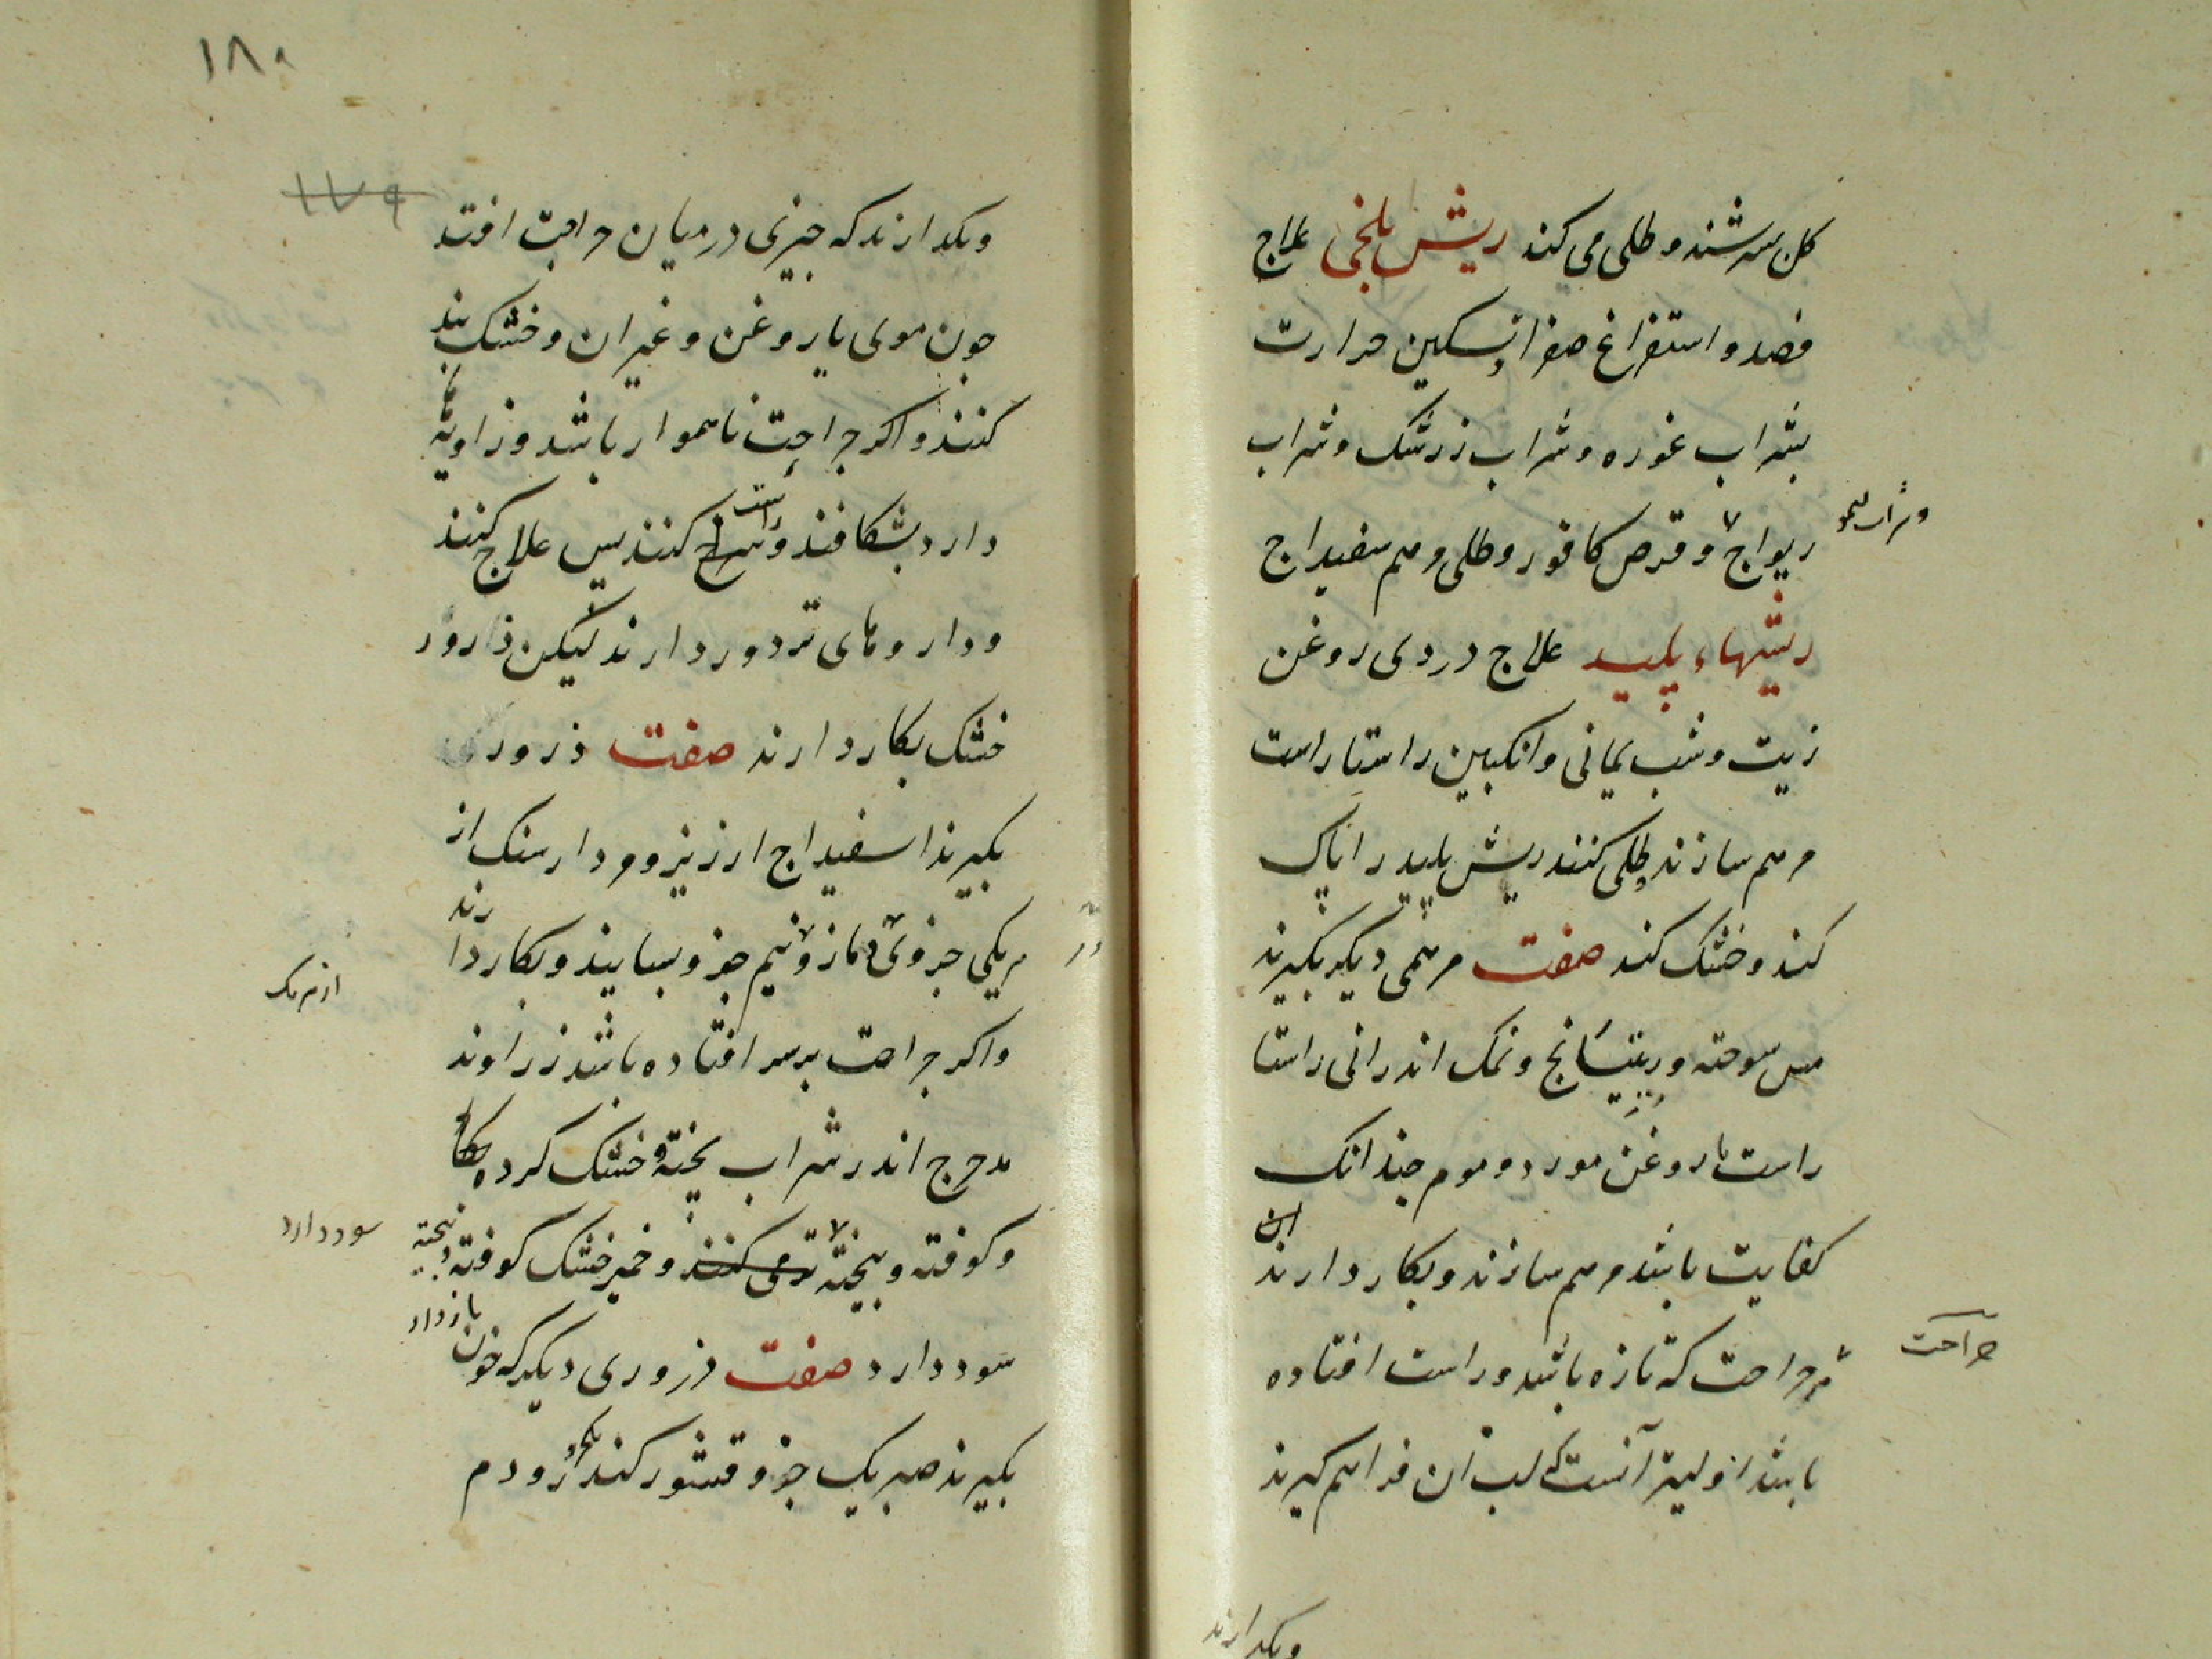 کل سرشند و طلی می کند ریش بلخی علاج
فصد و استفراغ صفرا و تسکین حرارت
بشراب غوره و شراب زرشک و شراب
ریواج و قرص کافور و طلی مرهم سفیداج
و شراب لیمو
ریشهاء پلید علاج دردی روغن
زیت و شب یمانی و انکبین راستا راست
مرهم سازند و طلی کنند ریش پلید را پاک
کند و خشک کند صفت مرهمی دیکر بکیرند
مس سوخته و ریتیانج و نمک اندرانی راستا
راست با روغن مورد و موم چندانک
کفایت باشد مرهم سازند و بکار دارند
جراحت
هر جراحت که تازه باشد و راست افتاده
باشد اولیتر آنست که لب آن فراهم کیرند
وبکدارند
۱۸۰
۱۷۹
وبکدارند که چیزی در میان جراحت افتد
چون موی یا روغن و غیر ان و خشک بند
کنند و اکر جراحت ناهموار باشد و زاویه
دارد بشکافند و راست کنند پس علاج کنند
و داروهای تر دور دارند لیکن ذارور
خشک بکار دارند صفت ذروری
بکیرند اسفیداج ارزیز و مردارسنک از
هریکی جزوی و مازو نیم جزو بسایند و بکار دارند
از هر یک
واکر جراحت بر سر افتاده باشد زراوند
مدحرج اندر شراب پخته و خشک کرده
و کوفته و بیخته تر می کنند و خمیر خشک کوفته و بیخته
سود دارد
سود دارد صفت ذروری دیکر که خون باز دارد
بکیرند صبر یک جزو و قشور کندر و دم